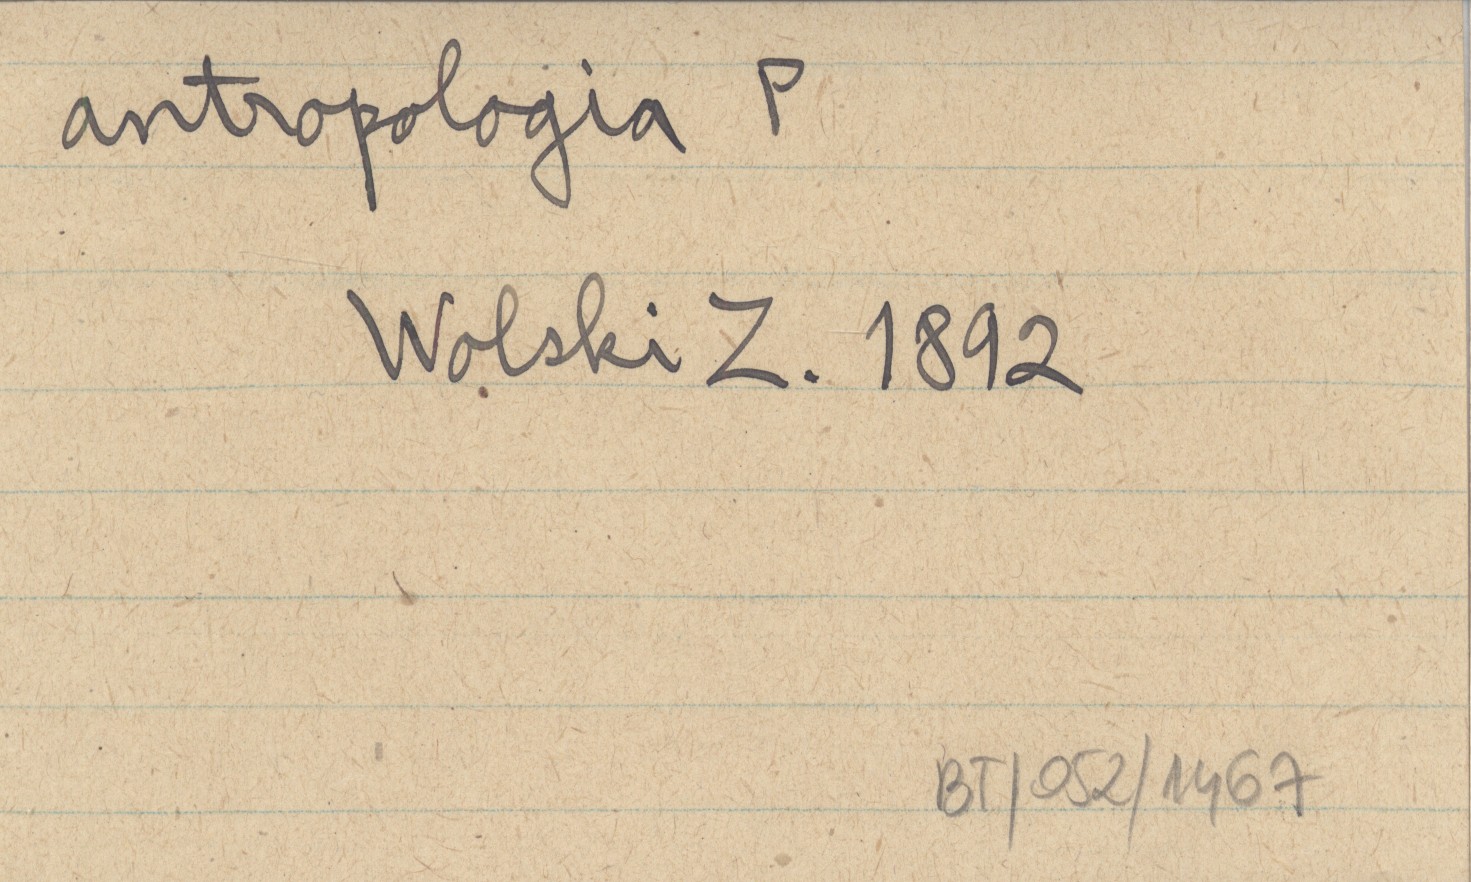 antropologia P
Wolski Z. 1892
BT/052/1467